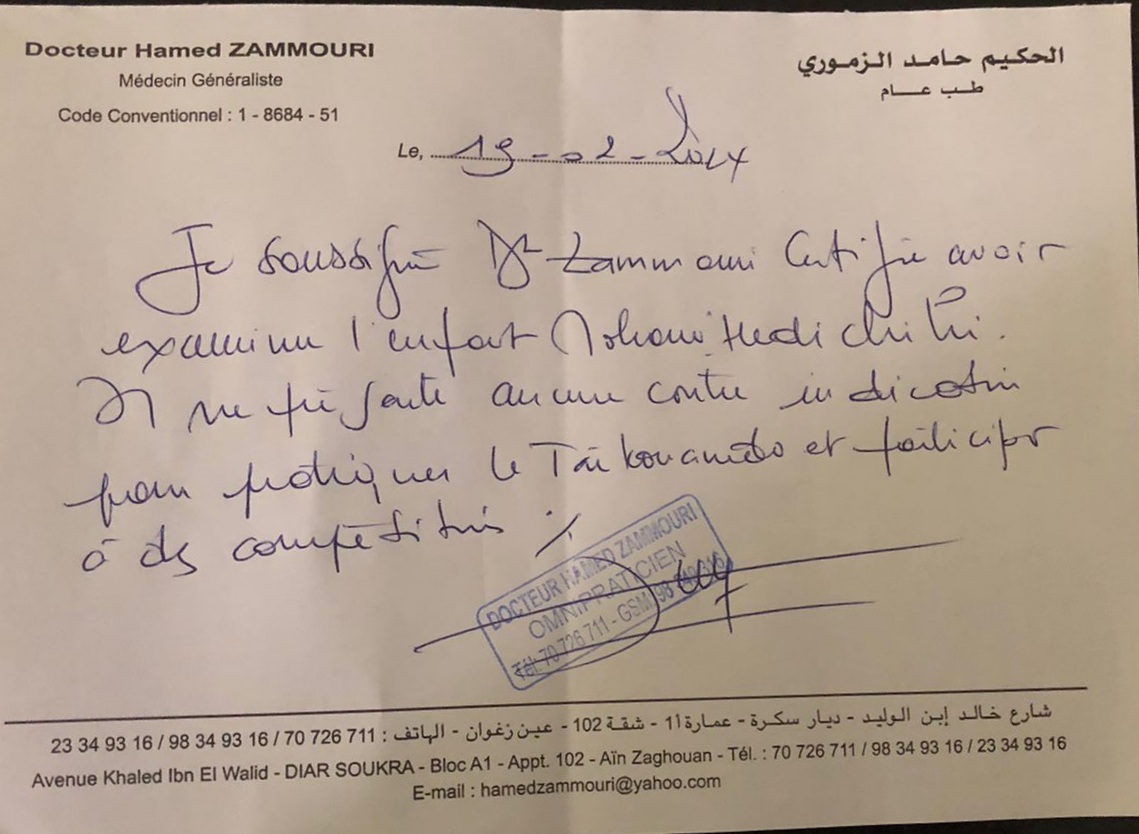 Docteur Hamed ZAMMOURI
Médecin Généraliste
Code Conventionnel : 1 - 8684 - 51
الحكيم حامد الزموري
طب عام
Le, 19-02-2017
Je soussigné Dr Zammouri Certifie avoir
examiner l'enfant Hedi
Il ne présente aucune contre indication
pour pratiquer le Taikouando et participer
à des compétitions
DOCTEUR HAMED ZAMMOURI
OMNIPRATICIEN
Tél: 70 726 711 - GSM: 98 349 316
شارع خالد إبن الوليد - ديار سكرة - عمارة أ1 - شقة 102 - عين زغوان - الهاتف : 70 726 711 / 98 34 93 16 / 23 34 93 16
Avenue Khaled Ibn El Walid - DIAR SOUKRA - Bloc A1 - Appt. 102 - Aïn Zaghouan - Tél. : 70 726 711 / 98 34 93 16 / 23 34 93 16
E-mail : hamedzammouri@yahoo.com